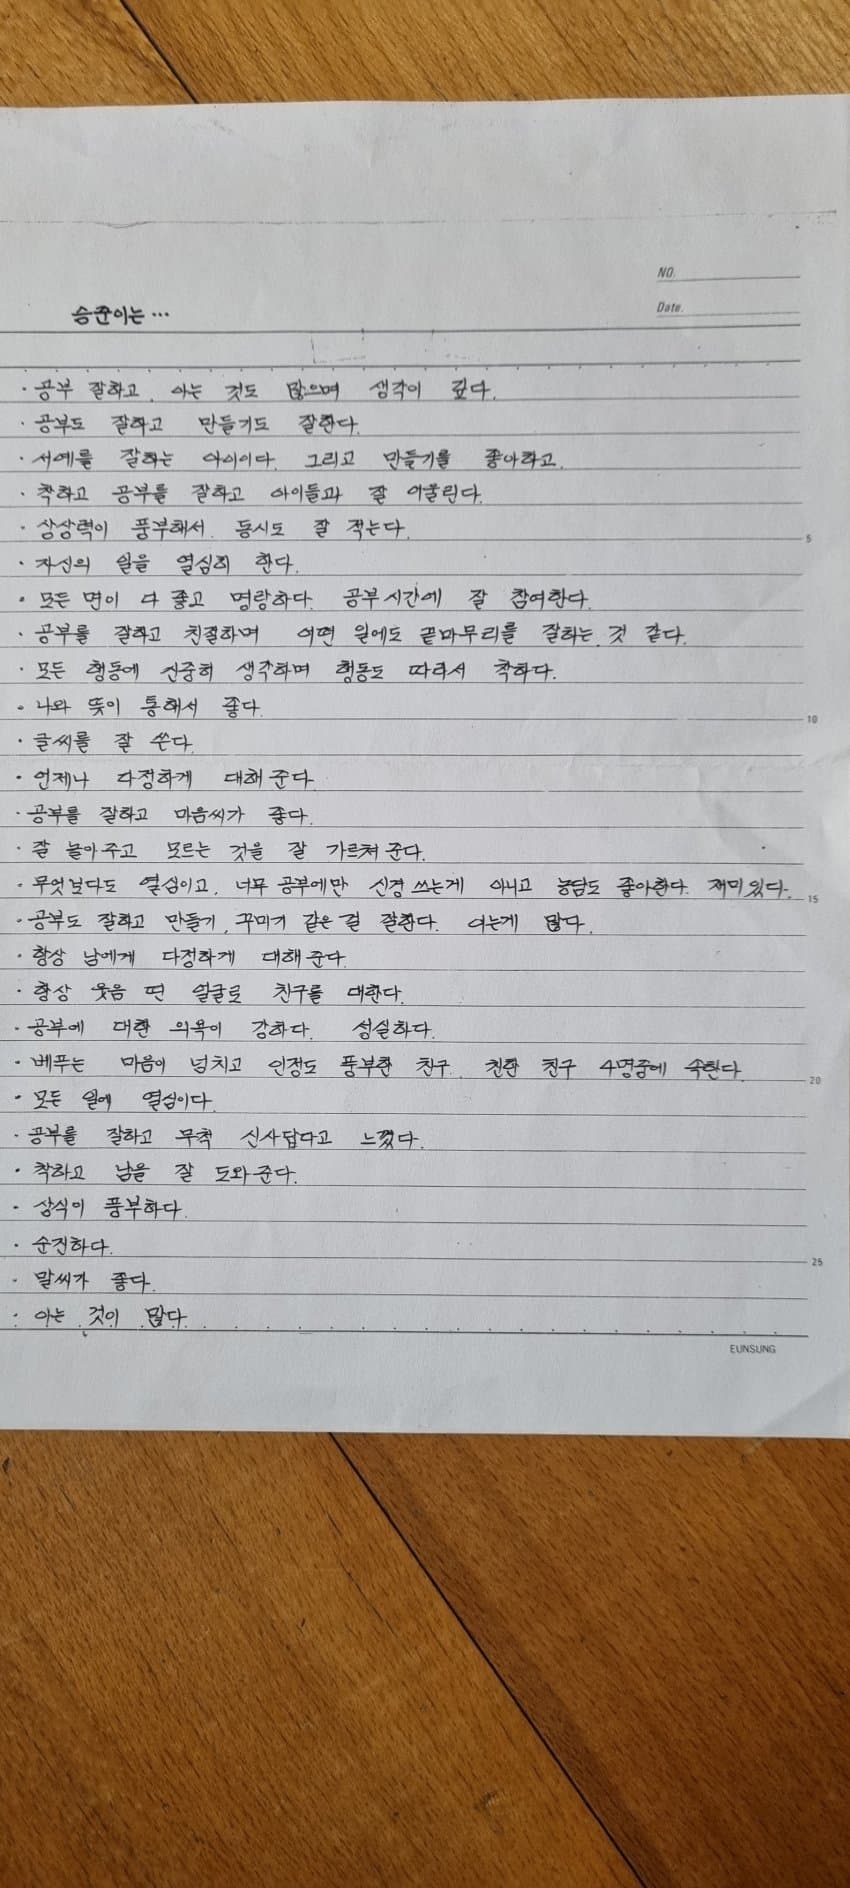 NO.
Date.
승준이는…
· 공부 잘하고, 아는 것도 많으며 생각이 깊다.
· 공부도 잘하고 만들기도 잘한다.
· 서예를 잘하는 아이이다. 그리고 만들기를 좋아하고.
· 착하고 공부를 잘하고 아이들과 잘 어울린다.
· 상상력이 풍부해서 동시도 잘 적는다.
· 자신의 일을 열심히 한다.
· 모든 면이 다 좋고 명랑하다. 공부시간에 잘 참여한다.
· 공부를 잘하고 친절하며 어떤 일에도 끝마무리를 잘하는 것 같다.
· 모든 행동에 신중히 생각하며 행동도 따라서 착하다.
· 나와 뜻이 통해서 좋다.
· 글씨를 잘 쓴다.
· 언제나 다정하게 대해준다.
· 공부를 잘하고 마음씨가 좋다.
· 잘 놀아주고 모르는 것을 잘 가르쳐준다.
· 무엇보다도 열심이고, 너무 공부에만 신경쓰는게 아니고 농담도 좋아한다. 재미있다.
· 공부도 잘하고 만들기, 꾸미기 같은 걸 잘한다. 아는게 많다.
· 항상 남에게 다정하게 대해준다.
· 항상 웃음 띤 얼굴로 친구를 대한다.
· 공부에 대한 의욕이 강하다. 성실하다.
· 베푸는 마음이 넘치고 인정도 풍부한 친구. 친한 친구 4명중에 속한다.
· 모든 일에 열심이다.
· 공부를 잘하고 무척 신사답다고 느꼈다.
· 착하고 남을 잘 도와준다.
· 상식이 풍부하다.
· 순진하다.
· 말씨가 좋다.
· 아는 것이 많다.
5
10
15
20
25
EUNSUNG